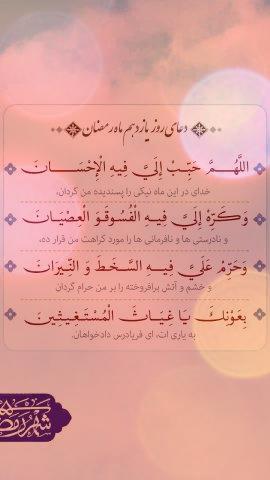 دعای روز یازدهم ماه رمضان
اللَّهُمَّ حَبِّبْ إِلَيَّ فِيهِ الْإِحْسَانَ
خدای در این ماه نیکی را پسندیده من گردان،
وَ كَرِّهْ إِلَيَّ فِيهِ الْفُسُوقَ وَ الْعِصْيَانَ
و نادرستی ها و نافرمانی ها را مورد کراهت من قرار ده،
وَ حَرِّمْ عَلَيَّ فِيهِ السَّخَطَ وَ النِّيرَانَ
و خشم و آتش برافروخته را بر من حرام گردان
بِعَوْنِكَ يَا غِيَاثَ الْمُسْتَغِيثِينَ
به یاری ات، ای فریادرس دادخواهان.